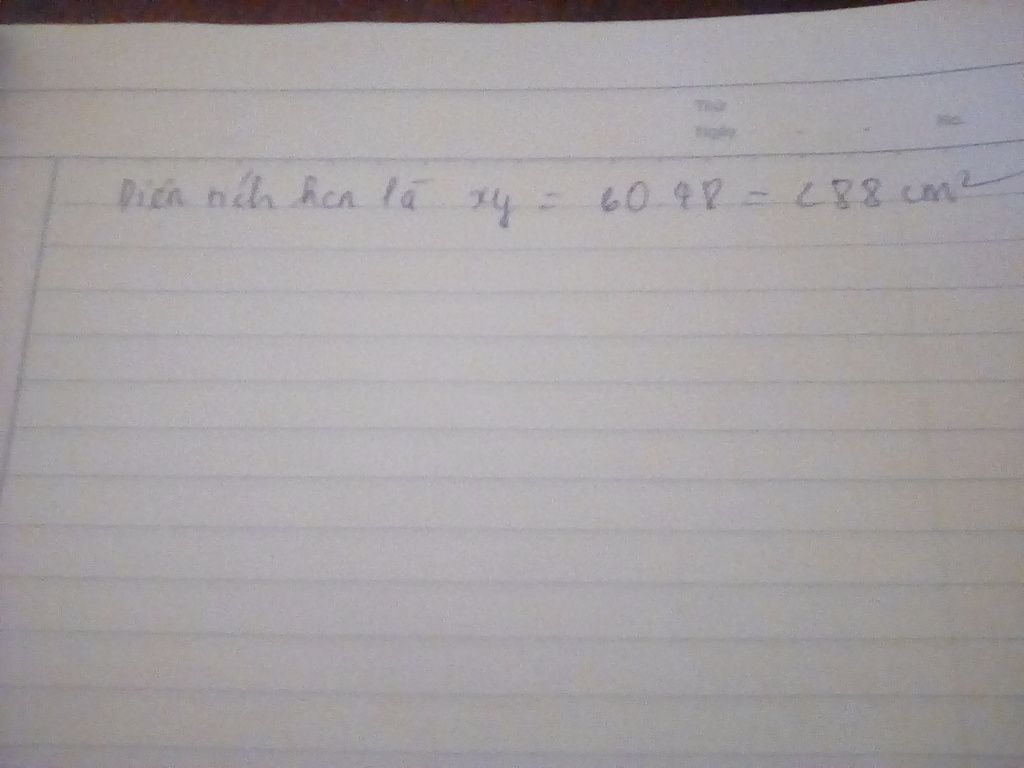 Thứ
Ngày
No.
Diện tích hcn là xy = 60.48 = 288 cm²